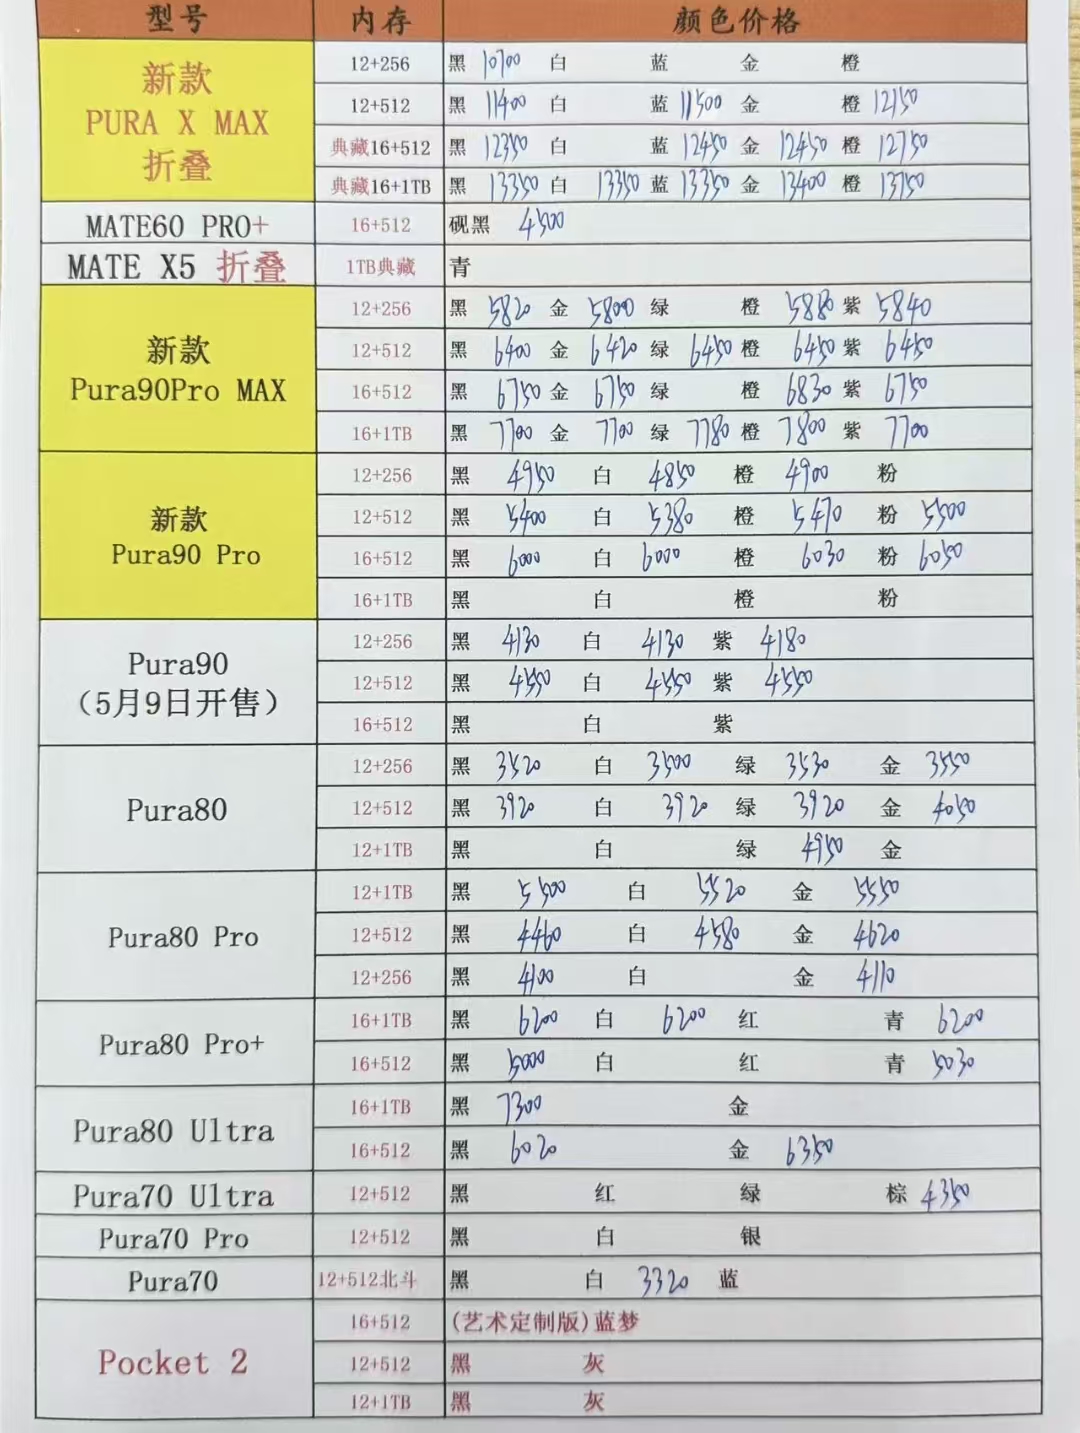 型号 内存 颜色价格
新款 PURA X MAX 折叠
12+256 黑 10700 白 蓝 金 橙
12+512 黑 11400 白 蓝 11500 金 橙 12150
典藏16+512 黑 12350 白 蓝 12450 金 12450 橙 12750
典藏16+1TB 黑 13350 白 13350 蓝 13350 金 13400 橙 13750
MATE60 PRO+ 16+512 砚黑 4500
MATE X5 折叠 1TB典藏 青
新款 Pura90Pro MAX
12+256 黑 5820 金 5800 绿 橙 5880 紫 5840
12+512 黑 6400 金 6420 绿 6450 橙 6450 紫 6450
16+512 黑 6750 金 6750 绿 橙 6830 紫 6750
16+1TB 黑 7700 金 7700 绿 7780 橙 7800 紫 7700
新款 Pura90 Pro
12+256 黑 4950 白 4850 橙 4900 粉
12+512 黑 5400 白 5380 橙 5470 粉 5500
16+512 黑 6000 白 6000 橙 6030 粉 6050
16+1TB 黑 白 橙 粉
Pura90 (5月9日开售)
12+256 黑 4130 白 4130 紫 4180
12+512 黑 4550 白 4550 紫 4550
16+512 黑 白 紫
Pura80
12+256 黑 3520 白 3500 绿 3530 金 3550
12+512 黑 3920 白 3920 绿 3920 金 4050
12+1TB 黑 白 绿 4950 金
Pura80 Pro
12+1TB 黑 5500 白 5520 金 5550
12+512 黑 4460 白 4580 金 4620
12+256 黑 4100 白 金 4110
Pura80 Pro+
16+1TB 黑 6200 白 6200 红 青 6200
16+512 黑 5000 白 红 青 5030
Pura80 Ultra
16+1TB 黑 7300 金
16+512 黑 6020 金 6350
Pura70 Ultra 12+512 黑 红 绿 棕 4350
Pura70 Pro 12+512 黑 白 银
Pura70 12+512北斗 黑 白 3320 蓝
Pocket 2
16+512 (艺术定制版)蓝梦
12+512 黑 灰
12+1TB 黑 灰